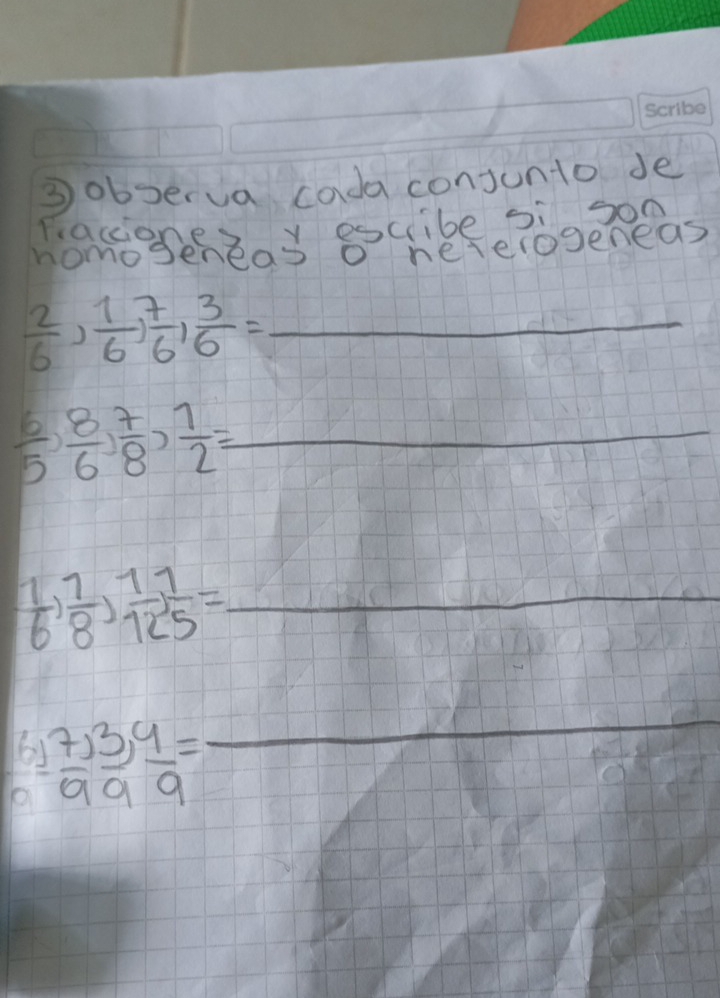 Scribe
3) observa cada conjunto de
fracciones y escribe si son
homogeneas o heterogeneas
2/6, 1/6, 7/6, 3/6 = ______
6/5, 8/6, 7/8, 1/2 = ______
1/6, 1/8, 1/12, 1/5 = ______
6/9, 7/9, 3/9, 4/9 = ______